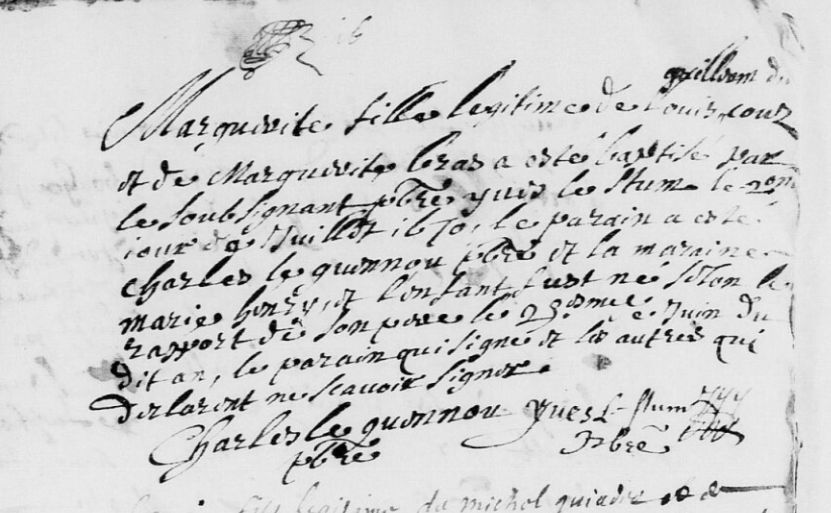 guillosm du
Marguerite fille legitime de Louis cour
et de Marguerite bras a esté baptisé par
le soubsignant pbre yves le stum le 2om
iour de Juillet 1670, le parain a esté
Charles le guennou pbre et la maraine
marie henry, et l'enfant fust né selon le
rapport de son pere le 29esme Juin du
dit an, le parain qui signe et les autres qui
declarent ne scavoir signer.
Charles le guennou yves le stum
pbre pbre
fils legitime de michel